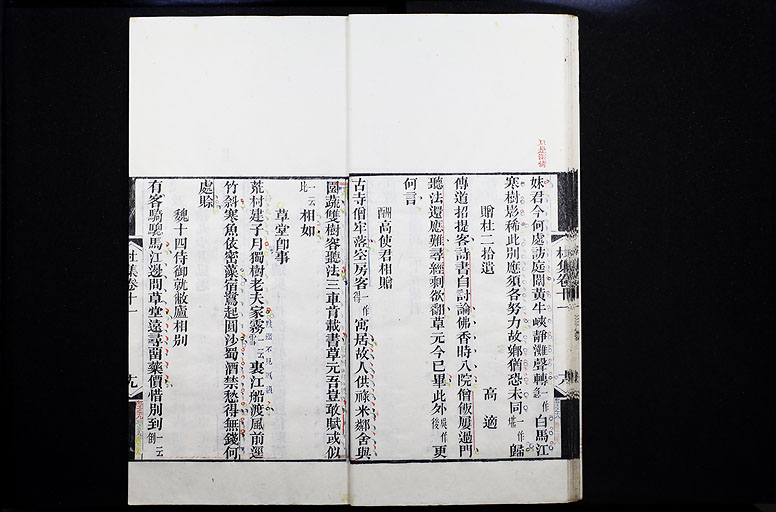 妹君今何處訪庭闈黃牛峽靜灘聲轉一作急白馬江
寒樹影稀此別應須各努力故鄉猶恐未同一作堪歸
贈杜二拾遺 高適
傳道招提客詩書自討論佛香時入院僧飯屢過門
聽法還應難尋經剩欲翻草元今已畢此外吳作後更
何言
酬高使君相贈
古寺僧牢落空房客一作得寓居故人供祿米鄰舍與
園蔬雙樹容聽法三車肯載書草元吾豈敢賦或似
一云比相如
草堂即事
荒村建子月獨樹老夫家霧一云雪裏江船渡風前逕
竹斜寒魚依密藻宿鷺起圓沙蜀酒禁愁得無錢何
處賒
魏十四侍御就敝廬相別
有客騎驄馬江邊問草堂遠尋留藥價惜別到一云倒
杜集卷十一
杜集卷十一
九